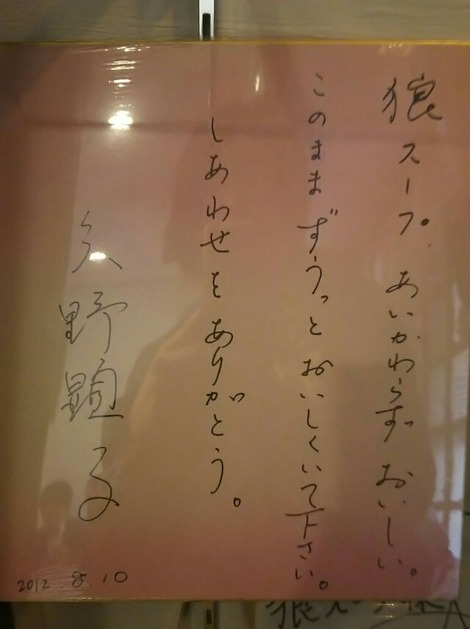 狼スープ。あいかわらず おいしい。
このまま ずうっと おいしくいて下さい。
しあわせを ありがとう。
矢野顕子
2012.8.10
狼スープ様